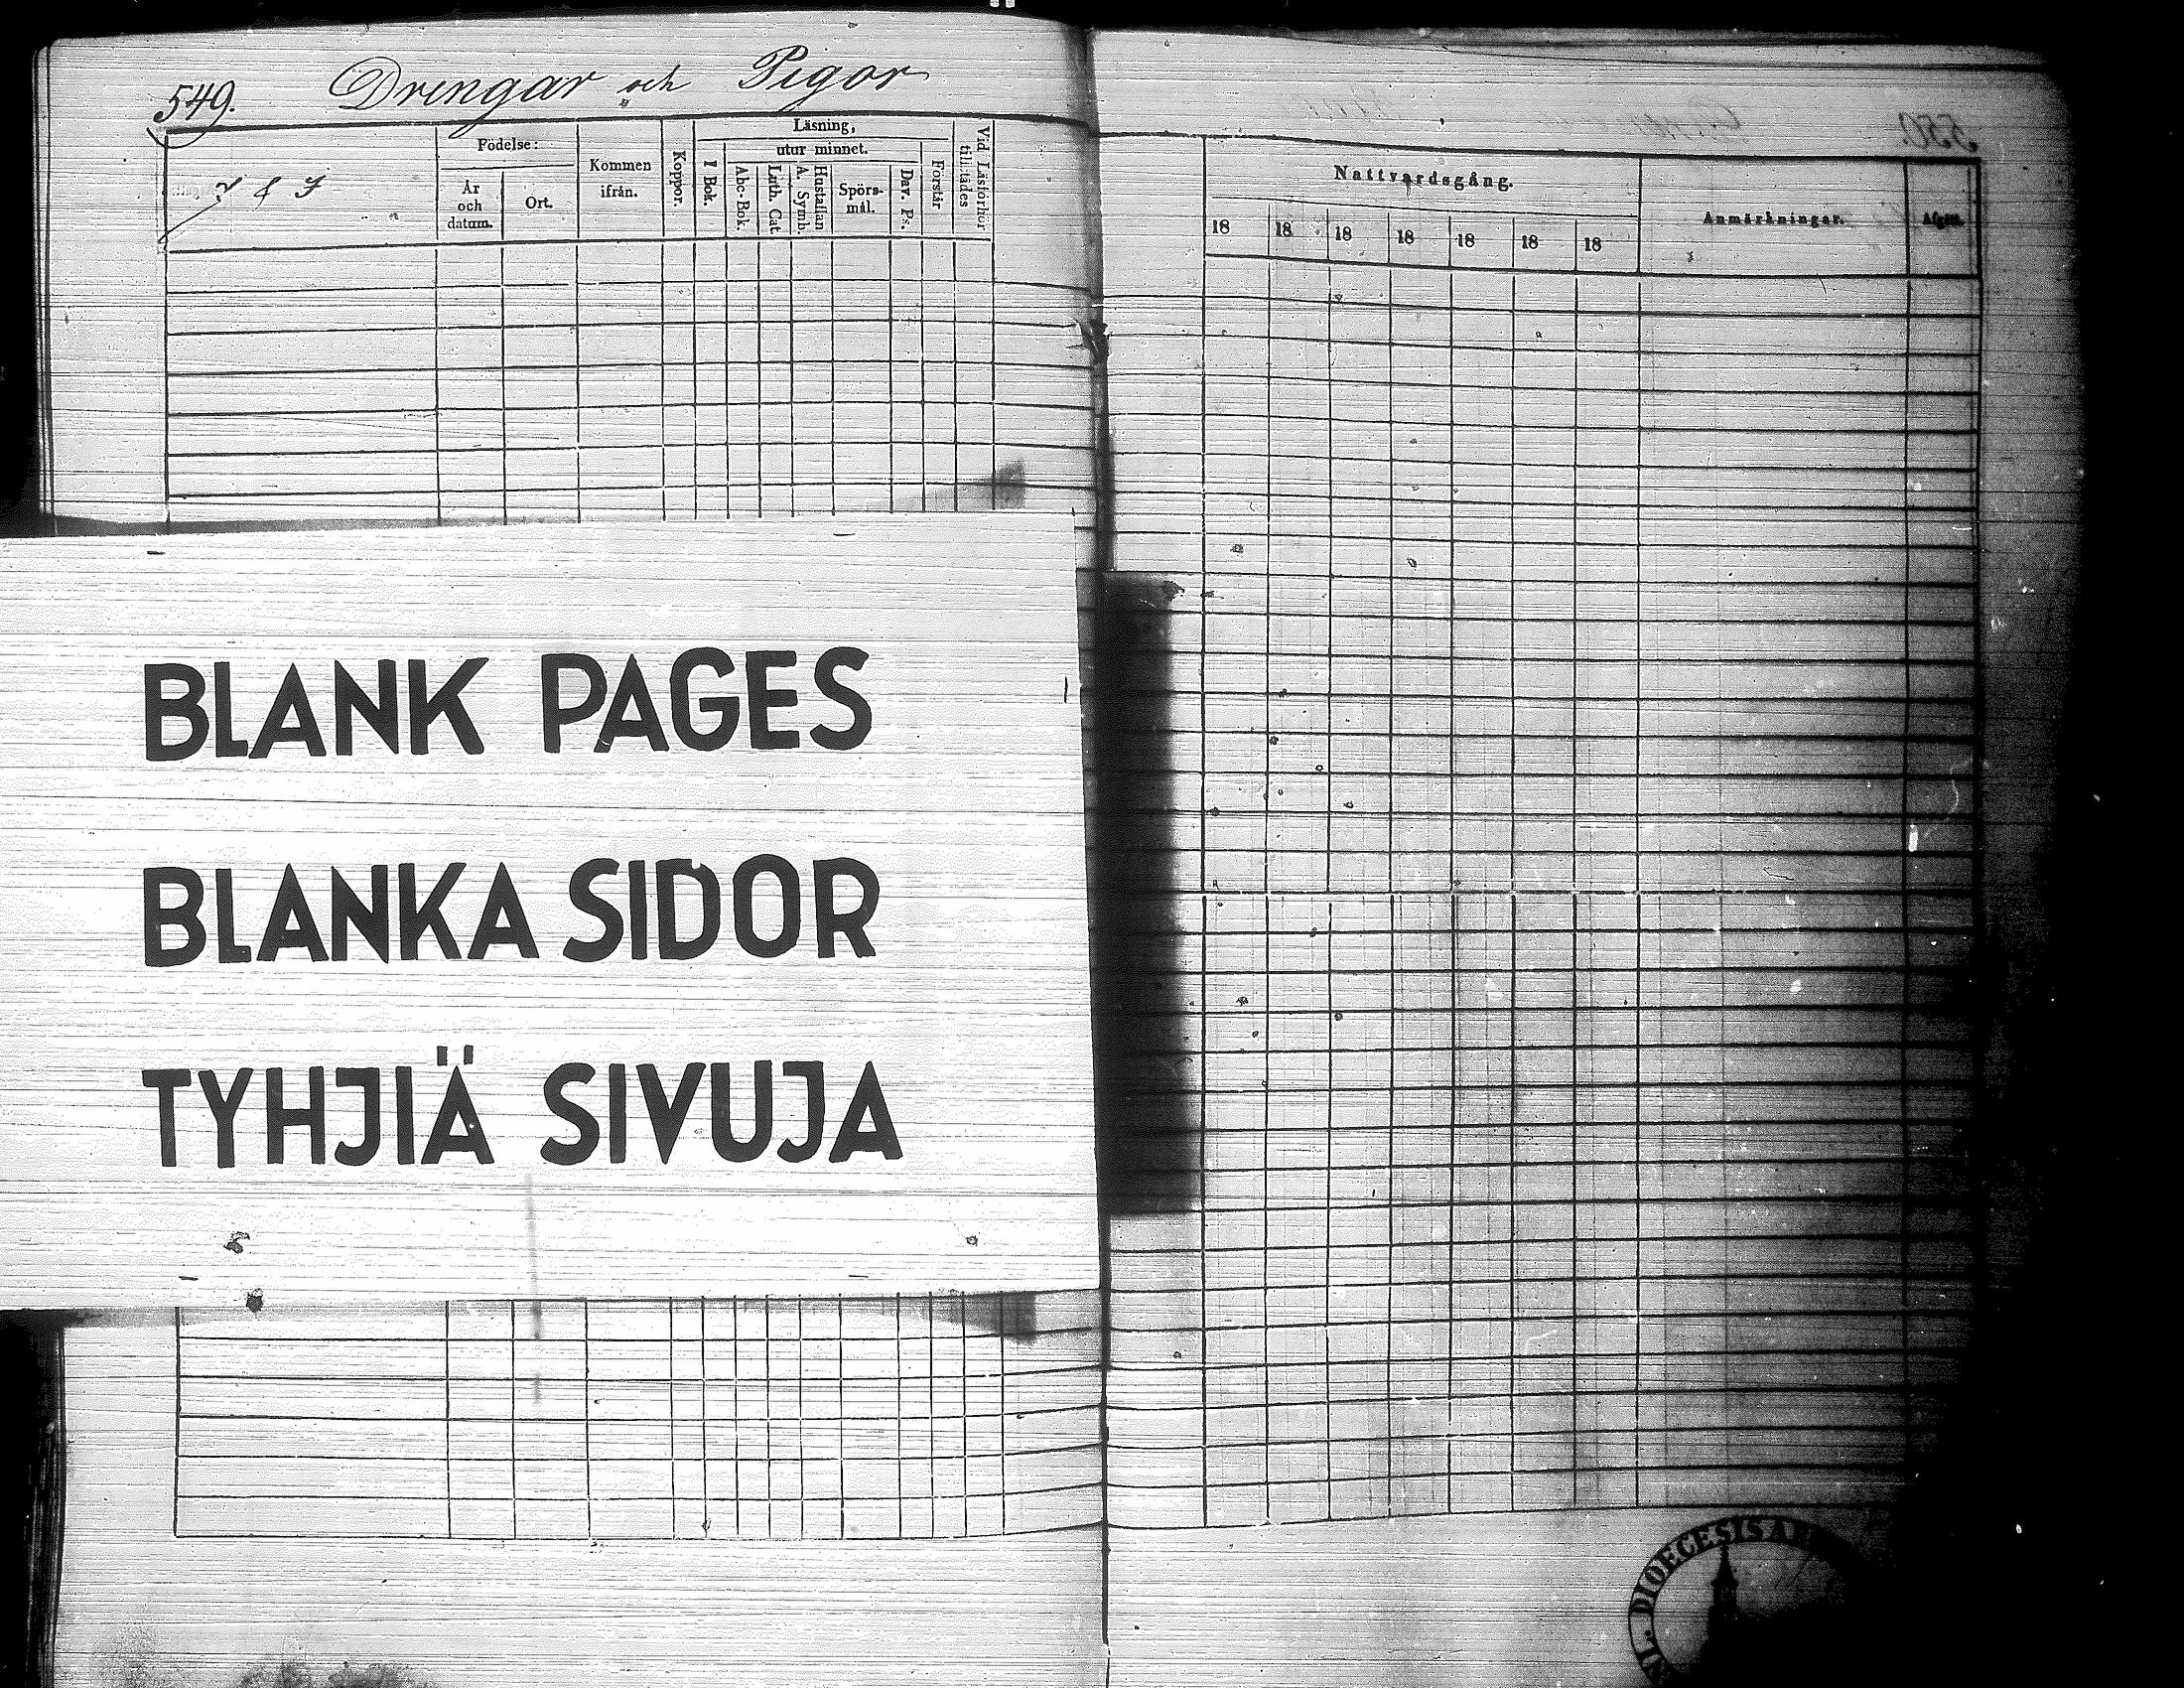 549. Drengar och Pigor
Födelse:
Läsning,
utur minnet.
Kommen
ifrån.
Koppor.
I Bok.
Abc-Bok.
Luth. Cat.
Hustaflan
A. Symb.
Spörs-
mål.
Dav. Ps.
Förstår
Vid Läsförhör
tillstädes
År
och
datum.
Ort.
J & I
Nattvardsgång.
18 18 18 18 18 18 18
Anmärkningar.
Afgått.
550.
BLANK PAGES
BLANKA SIDOR
TYHJIÄ SIVUJA
DIOECESIS